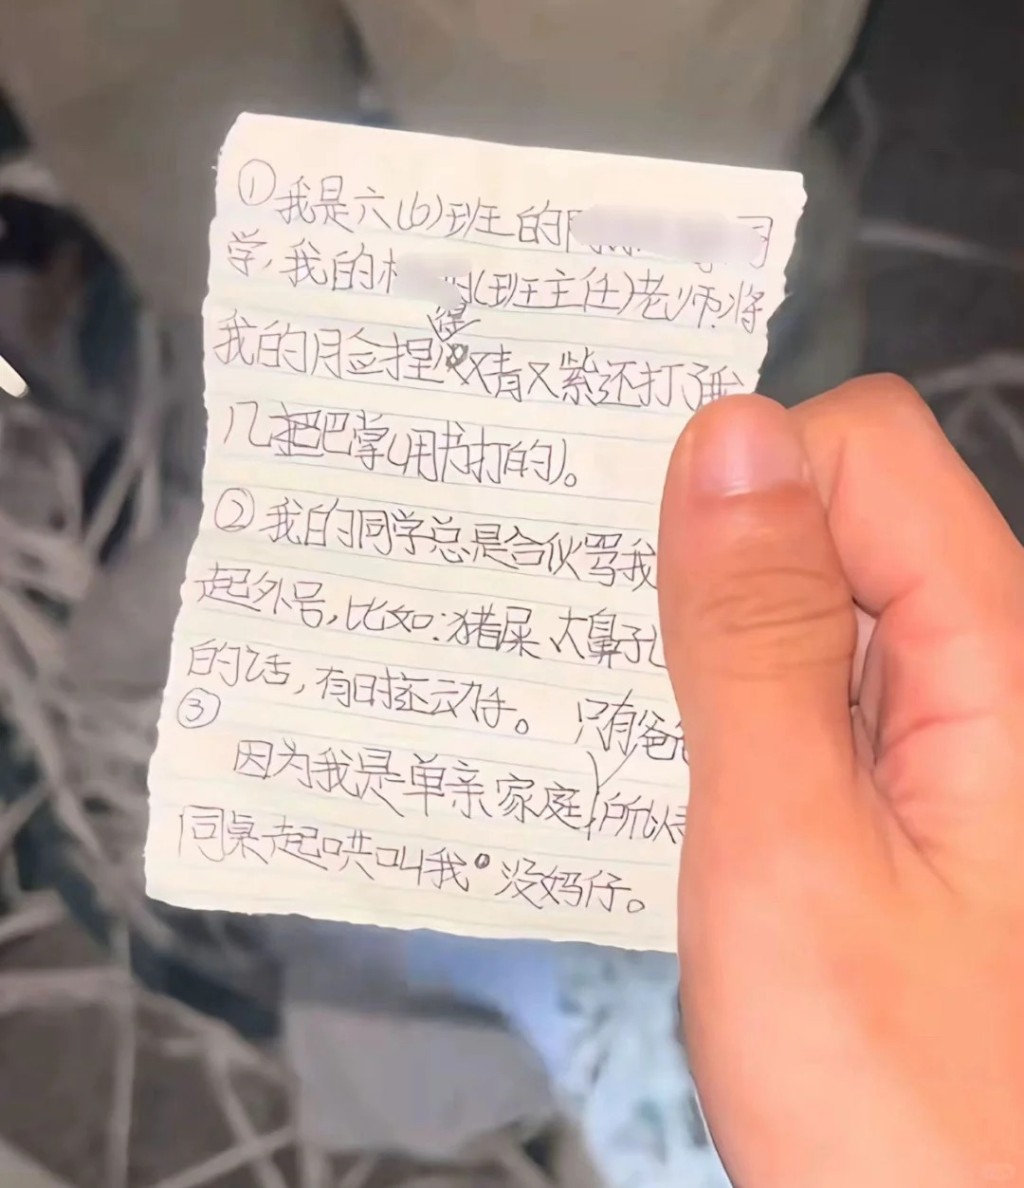 ①我是六(6)班的
学,我的(班主任)老师.将
我的脸捏得又青又紫还打了我
几把巴掌(用书打的)。
②我的同学总是合伙骂我
起外号,比如:猪屎、大鼻孔
的话,有时还动手。 只有爸爸
③
因为我是单亲家庭,所以
同桌起哄叫我没妈仔。